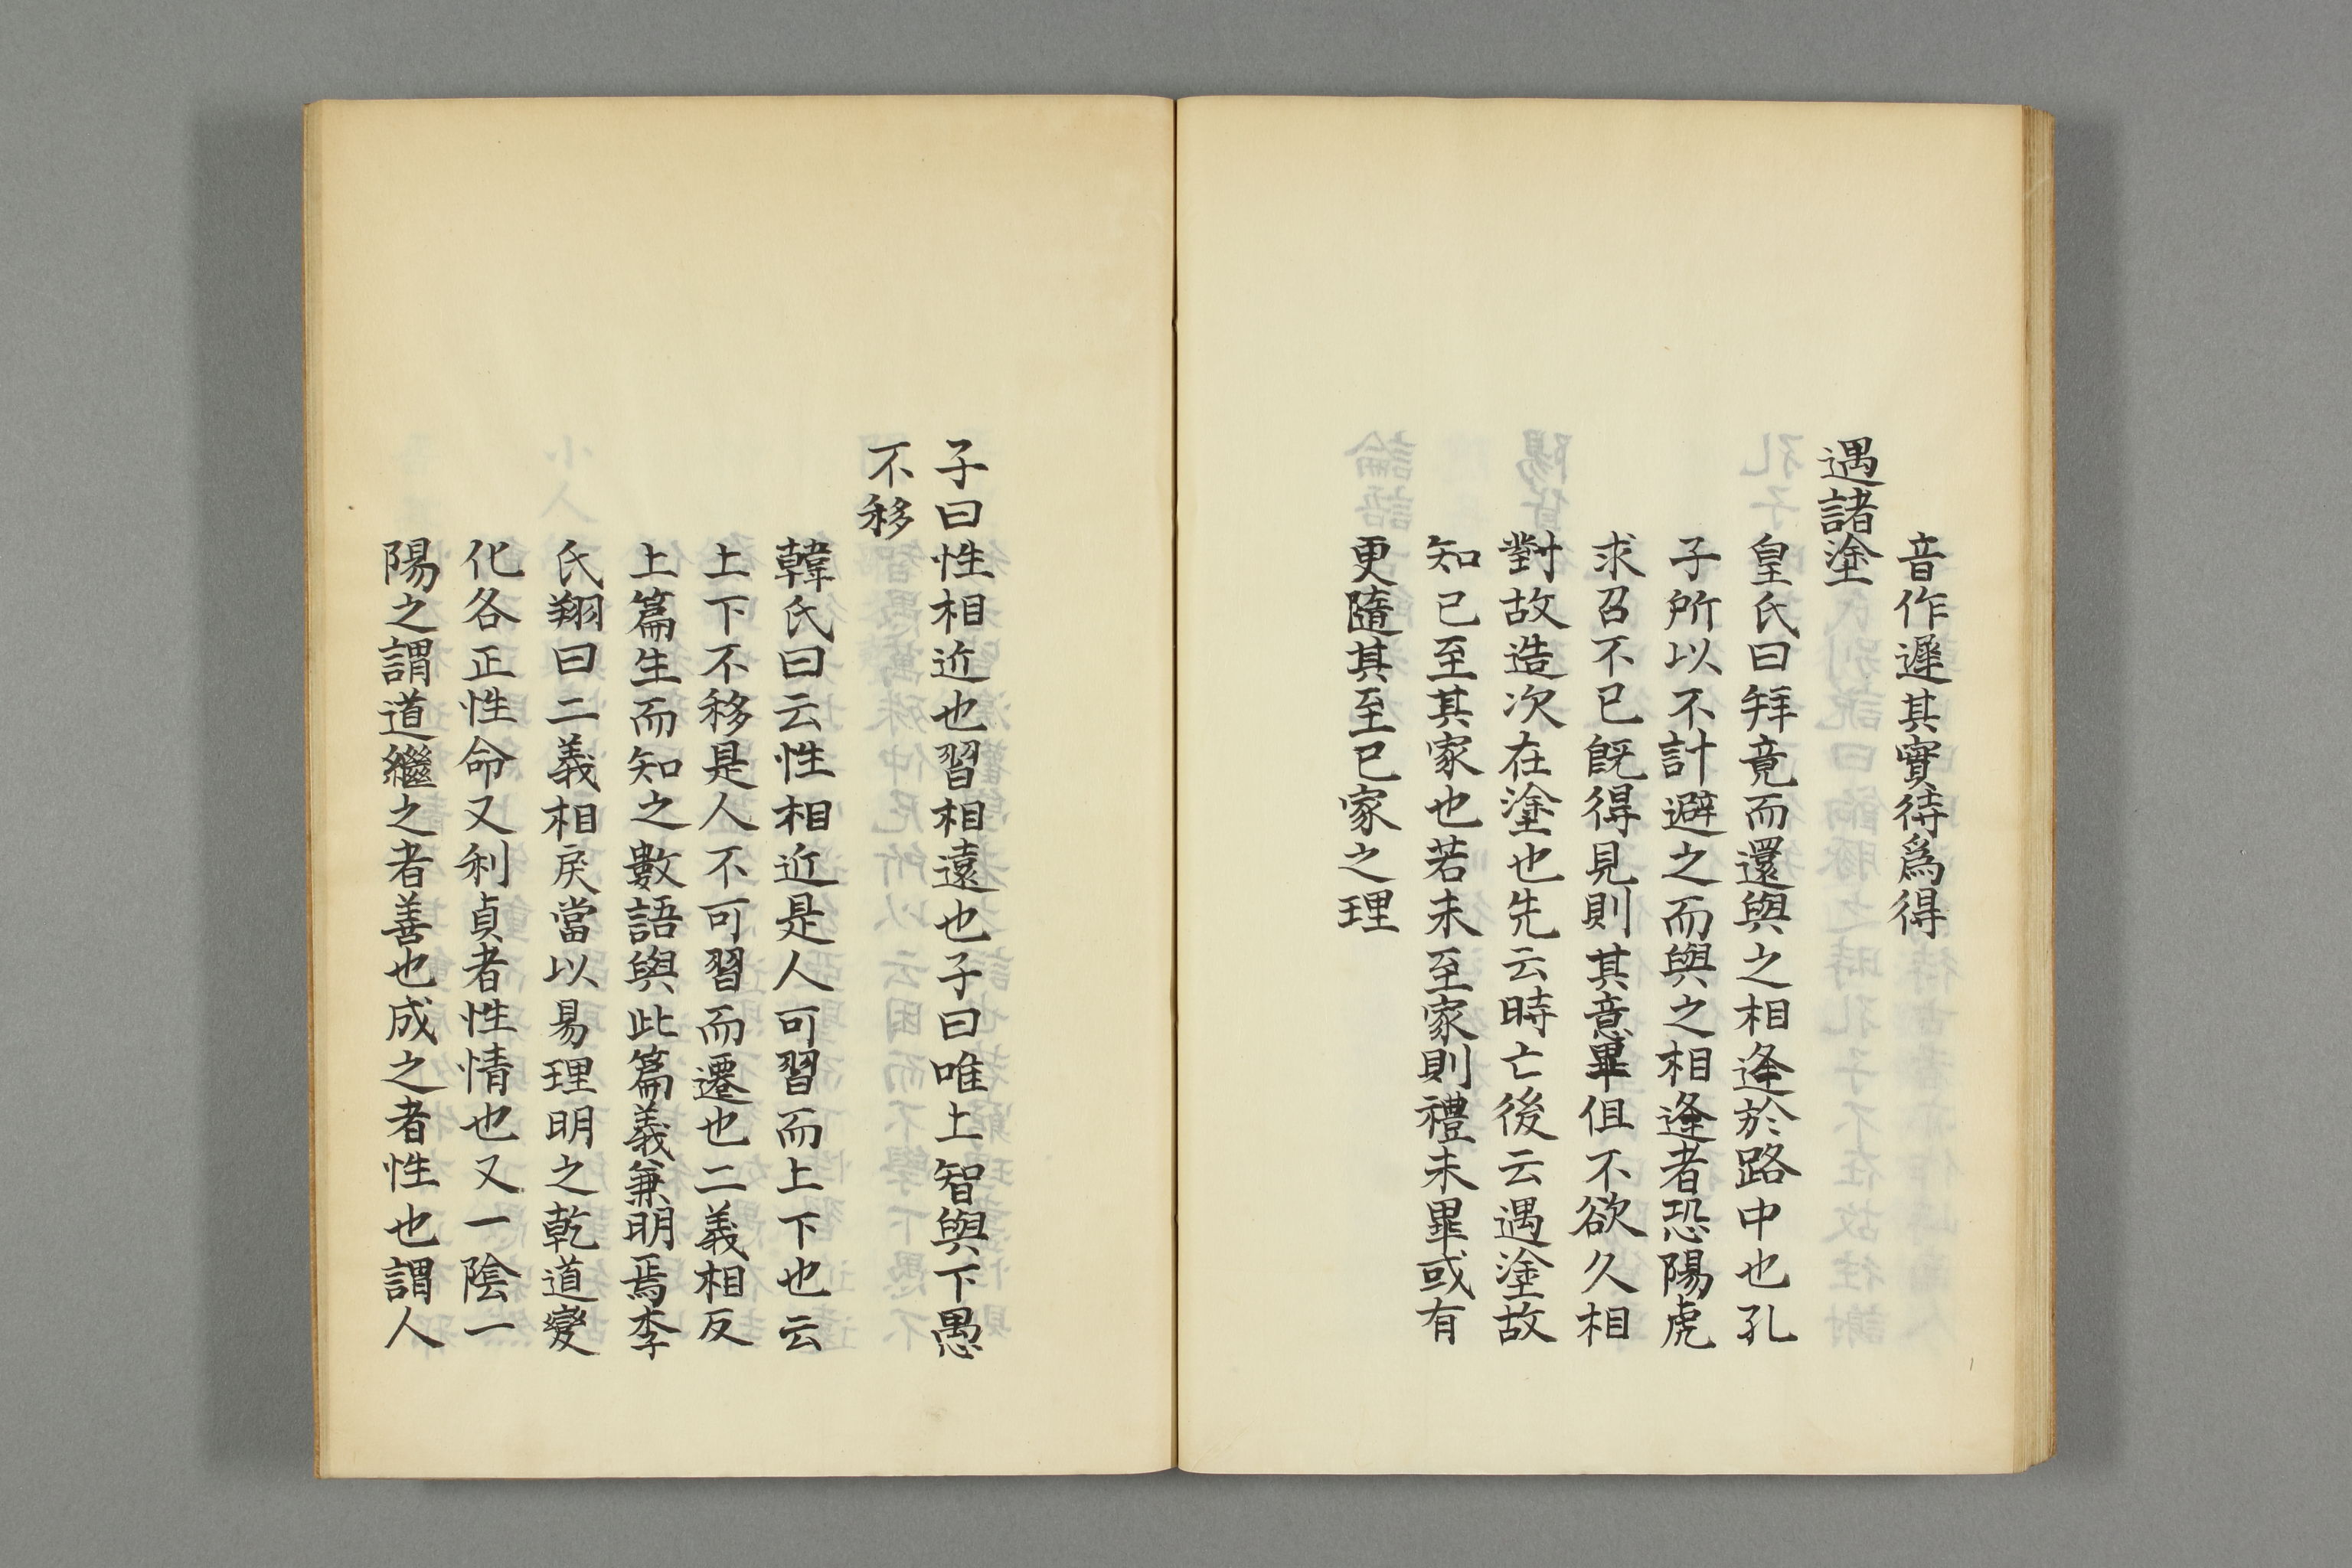 音作遲其實待爲得
遇諸塗
皇氏曰拜竟而還與之相逢於路中也孔
子所以不計避之而與之相逢者恐陽虎
求召不已既得見則其意畢但不欲久相
對故造次在塗也先云時亡後云遇塗故
知已至其家也若未至家則禮未畢或有
更隨其至己家之理
子曰性相近也習相遠也子曰唯上智與下愚
不移
韓氏曰云性相近是人可習而上下也云
上下不移是人不可習而遷也二義相反
上篇生而知之數語與此篇義兼明焉李
氏翔曰二義相戾當以易理明之乾道變
化各正性命又利貞者性情也又一陰一
陽之謂道繼之者善也成之者性也謂人